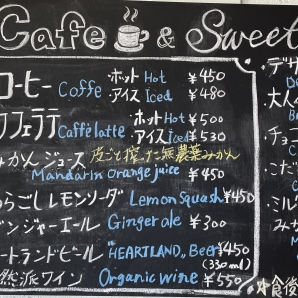 Cafe & Sweet
コーヒー Coffe ・ホット Hot ¥450
・アイス iced ¥480
カフェラテ Caffè latte ・ホット Hot ¥500
・アイス iced ¥530
みかんジュース 皮ごと搾った無農薬みかん
Mandarin orange juice ¥450
レモンソーダ Lemon Squash ¥450
ジンジャーエール Ginger ale ¥300
ートランドビール "HEARTLAND, Beer ¥450
(330ml)
然派ワイン Organic wine ¥550
・デザ
大人
・チョコ
・こだ
・ミル
みか
☆食後